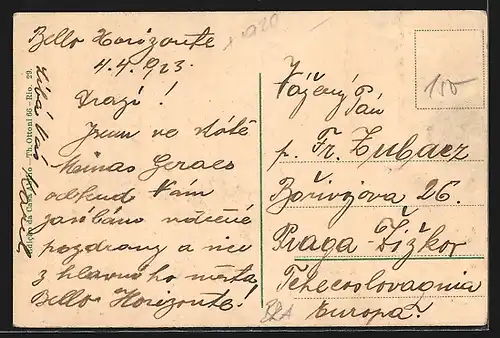 Bello Horizonte
4.4.923.
Drazí!
Jsem ve státě
Minas Geraes
odkud Vám
zasílám
pozdravy a sice
z hlavního města
Bello Horizonte!
Edição da Casa - Th. Ottoni 66 - Rio. 29.
Vážený Pán
p. Fr. Zubacz
Bořivojova 26.
Praga-Žižkov
Tchecoslovaquia
Europa.
150
BRA